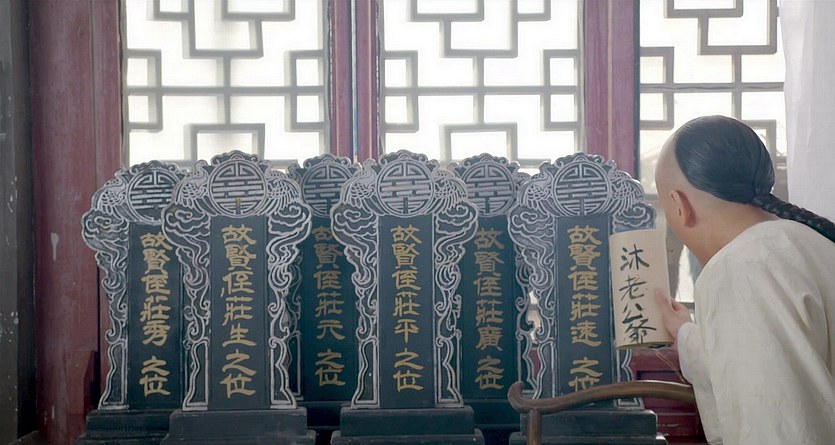 故賢侄莊秀之位
故賢侄莊生之位
故賢侄莊元之位
故賢侄莊平之位
故賢侄莊廣之位
故賢侄莊速之位
沐老公爺